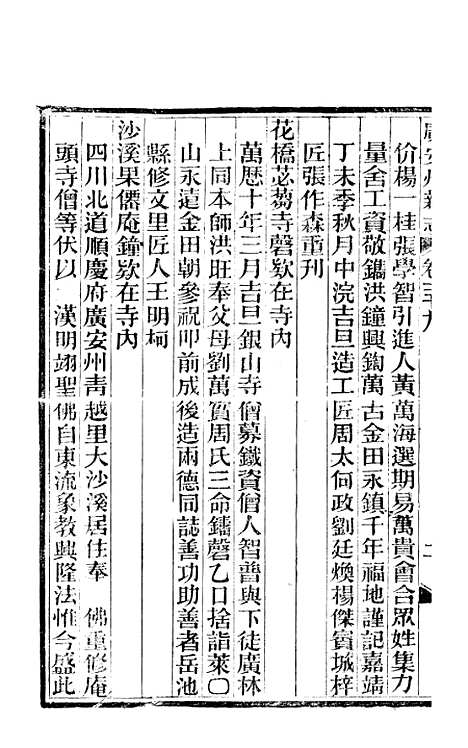 廣安州新志 卷三九 二
价楊一桂張學智引進人黃萬海選期易萬貴會合眾姓集力
量舍工資敬鑴洪鐘興鍧萬古金田永鎮千年福地謹記嘉靖
丁未季秋月中浣吉旦造工匠周太何政劉廷煥楊傑賓城梓
匠張作森重刊
花橋苾蒭寺磬欵在寺內
萬曆十年三月吉旦銀山寺僧募鐵資僧人智普與下徒廣林
上同本師洪旺奉父母劉萬賔周氏三命鑄磬乙口捨詣萊〇
山永遠金田朝參祝叩前成後造兩德同誌善功助善者岳池
縣修文里匠人王明柯
沙溪果僊庵鐘欵在寺內
四川北道順慶府廣安州青越里大沙溪居住奉 佛重修庵
頭寺僧等伏以 漢明翊聖佛自東流象教興隆法惟今盛此